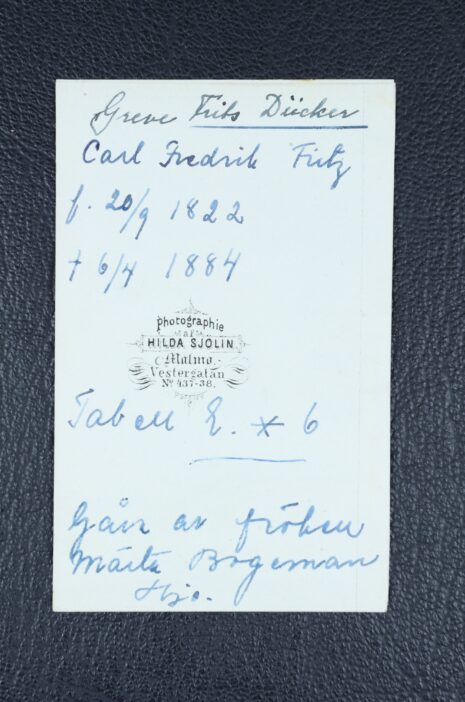 Greve Frits Dücker
Carl Fredrik Fritz
f. 20/9 1822
† 6/4 1884
Photographie
af
HILDA SJÖLIN
Malmö.
Vestergatan
No 437-38.
Tabell E. * 6
Gåva av fröken
Märta Bogeman
Hjo.